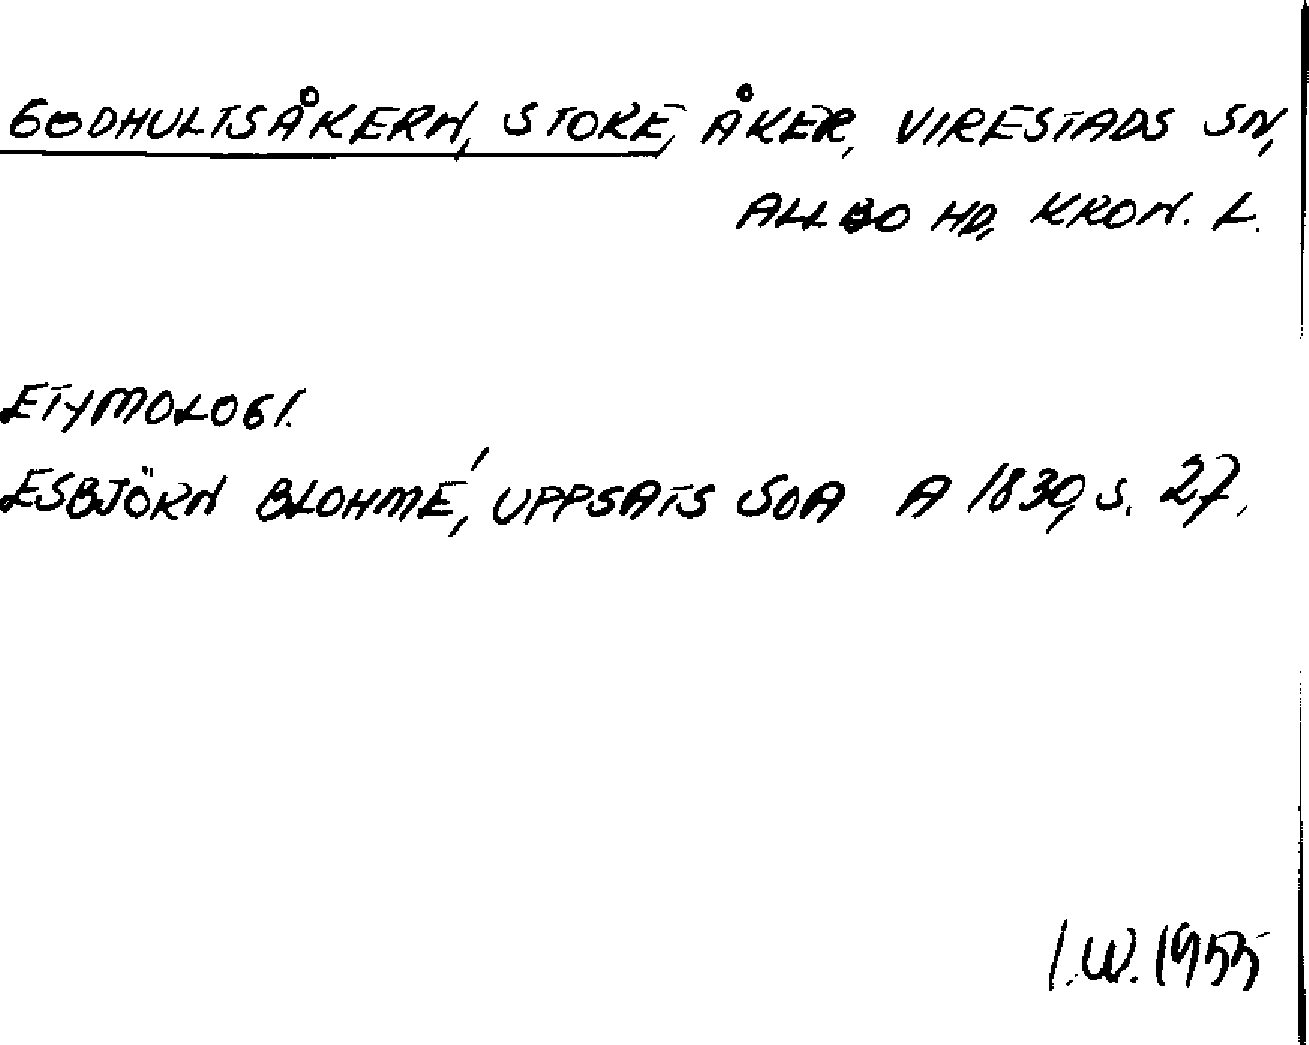 GODHULTSÅKERN, STORE, ÅKER, VIRESTADS SN,
ALLBO HD, KRON. L.
ETYMOLOGI.
ESBJÖRN BLOHMÉ, UPPSATS SOA A 1830, S. 27.
I.W. 1955